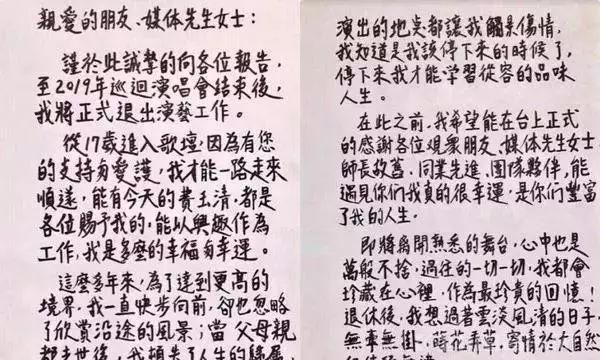 親愛的朋友、媒体先生女士：
謹於此誠摯的向各位報告，
至2019年巡迴演唱會結束後，
我將正式退出演藝工作。
從17歲進入歌壇，因為有您
的支持與愛護，我才能一路走來
順遂，能有今天的費玉清，都是
各位賜予我的，能以興趣作為
工作，我是多麼的幸福與幸運。
這麼多年來，為了達到更高的
境界，我一直快步向前，卻也忽略
了欣賞沿途的風景；當父母親
都去世後，我頓失了人生的歸屬，
演出的地点都讓我觸景傷情，
我知道是我該停下來的時候了，
停下來我才能學習從容的品味
人生。
在此之前，我希望能在台上正式
的感謝各位觀衆朋友、媒体先生女士、
師長故舊、同業先進、團隊夥伴，能
遇見你們我真的很幸運，是你們豐富
了我的人生。
即將離開熟悉的舞台，心中也是
萬般不捨，過往的一切一切，我都會
珍藏在心裡，作為最珍貴的回憶！
退休後，我想過著雲淡風清的日子，
無牽無掛，蒔花弄草，寄情於大自然